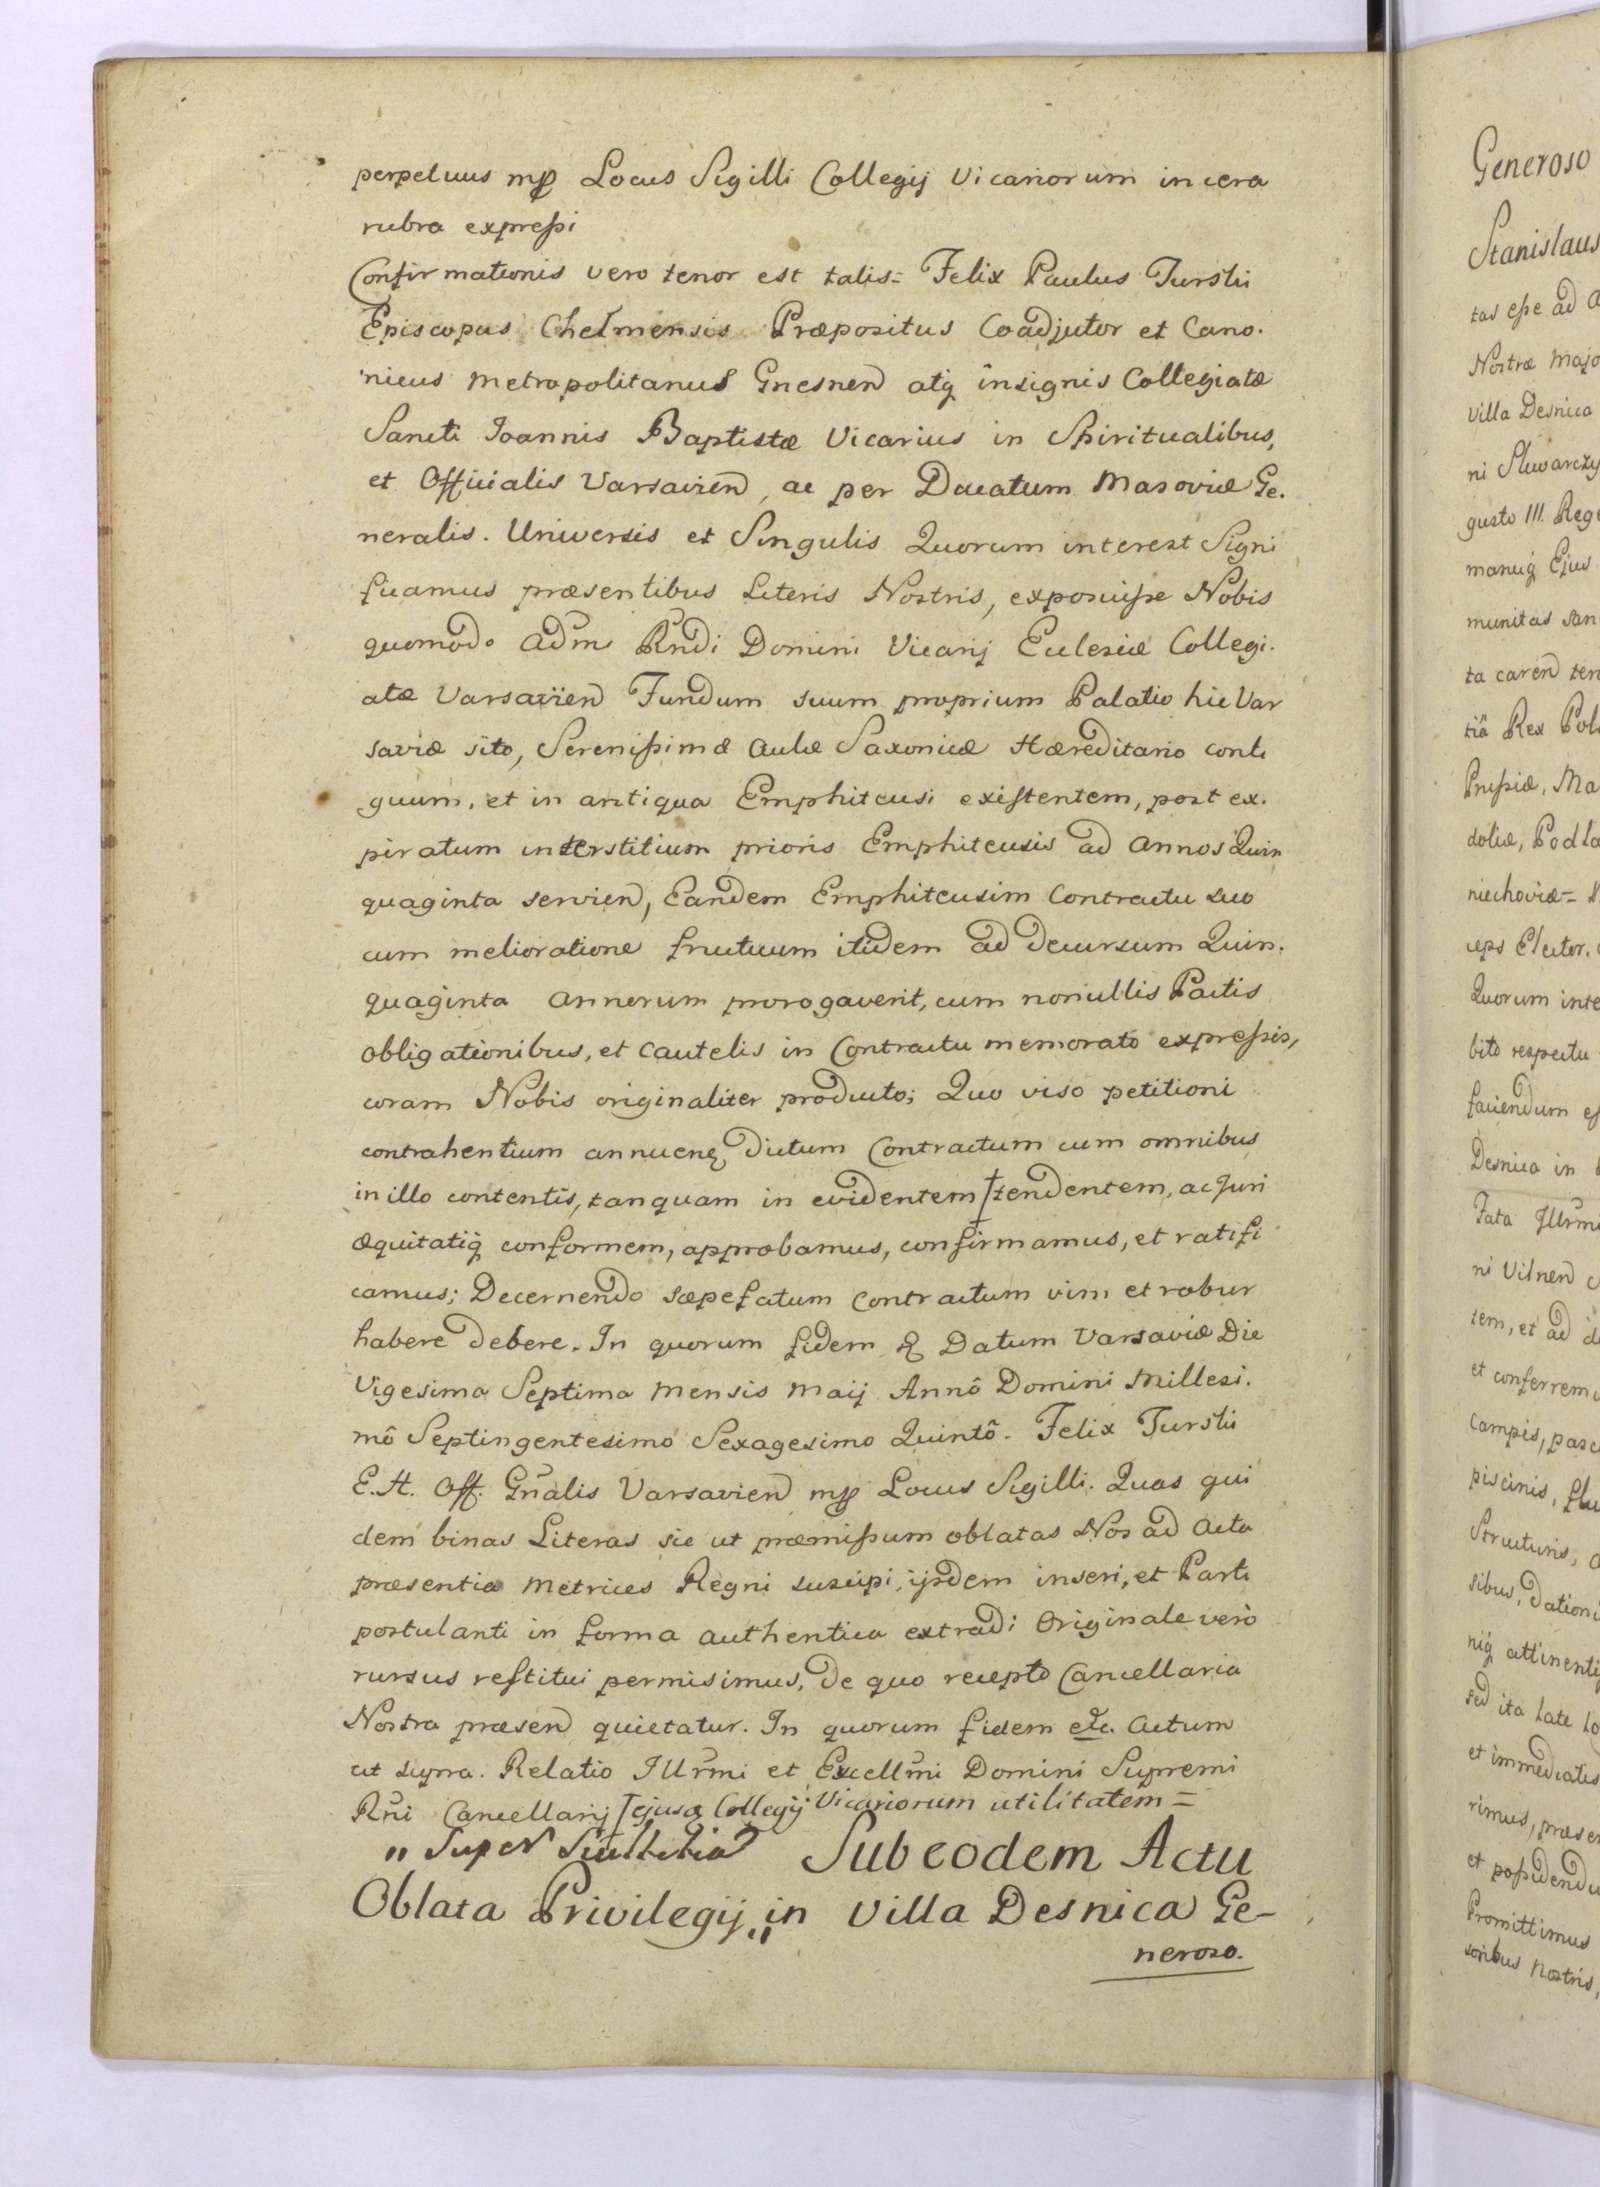 perpetuus mp Locus Sigilli Collegij Vicariorum in cera
rubra expreſsi
Confirmationis vero tenor est talis= Felix Paulus Turski
Episcopus Chelmensis Præpositus Coadjutor et Cano.
nicus Metropolitanus Gnesnen atq insignis Collegiatæ
Sancti Joannis Baptistæ Vicarius in Spiritualibus,
et Officialis Varsavien, ac per Ducatum Masoviæ Ge.
neralis. Universis et Singulis Quorum interest Signi
ficamus præsentibus Literis Nostris, exposuiſse Nobis
quomodo adm Rndi Domini Vicarij Eclesiæ Collegi.
atæ Varsavien Fundum suum proprium Palatio hic Var
saviæ sito, Sereniſsimæ Aulæ Saxonicæ Hæreditario conti
guum, et in antiqua Emphiteusi exiſtentem, post ex.
piratum interstitium prioris Emphiteusis ad Annos Quin
quaginta servien, Eandem Emphiteusim Contractu suo
cum melioratione fructuum itidem ad decursum Quin.
quaginta Annorum prorogaverit, cum nonullis Pactis
obligationibus, et cautelis in Contractu memorato expreſsis,
coram Nobis originaliter producto; Quo viso petitioni
contrahentium annuen, dictum Contractum cum omnibus
in illo contentis, tanquam in evidentem † tendentem, ac Juri
æquitatiq conformem, approbamus, confirmamus, et ratifi
camus; Decernendo sæpefatum contractum vim et robur
habere debere. In quorum fidem & Datum Varsaviæ Die
Vigesima Septima Mensis Maij Annô Domini Millesi.
mô Septingentesimo Sexagesimo Quintô. Felix Turski
E. H. Off. Gnalis Varsavien mp Locus Sigilli. Quas qui
dem binas Literas sic ut præmiſsum oblatas Nos ad Acta
præsentia Metrices Regni suscipi, ijsdem inseri, et Parti
postulanti in forma authentica extradi Originale verò
rursus reſtitui permisimus, de quo recepto Cancellaria
Nostra præsen quietatur. In quorum fidem etc. Actum
ut supra. Relatio Illrmi et Excellmi Domini Supremi
Rni Cancellarij † ejusq Collegij Vicariorum utilitatem =
" Super Scultetia Sub eodem Actu
Oblata Privilegij " in Villa Desnica Ge-
neroso.
Generoso
Stanislaus
tas eſse ad
Nostræ Majo
Villa Desnica
gusto III. Reg
manuq Ejus
munitas san
ta caren ten
tiâ Rex Pol
Pruſsiæ, Ma
doliæ, Podla
niechoviæ=
ceps Elector.
Quorum inte
bito respectu
faciendum eſ
Desnica in
Fata Illrmi
ni Vilnen
tem, et ad
et conferrem
Campis, pasc
piscinis, flu
Structuris,
sibus, dation
niq attinenti
sed ita late lo
et immediates
rimus, præsen
et poſsidendu
Promittimus
soribus Nostris,